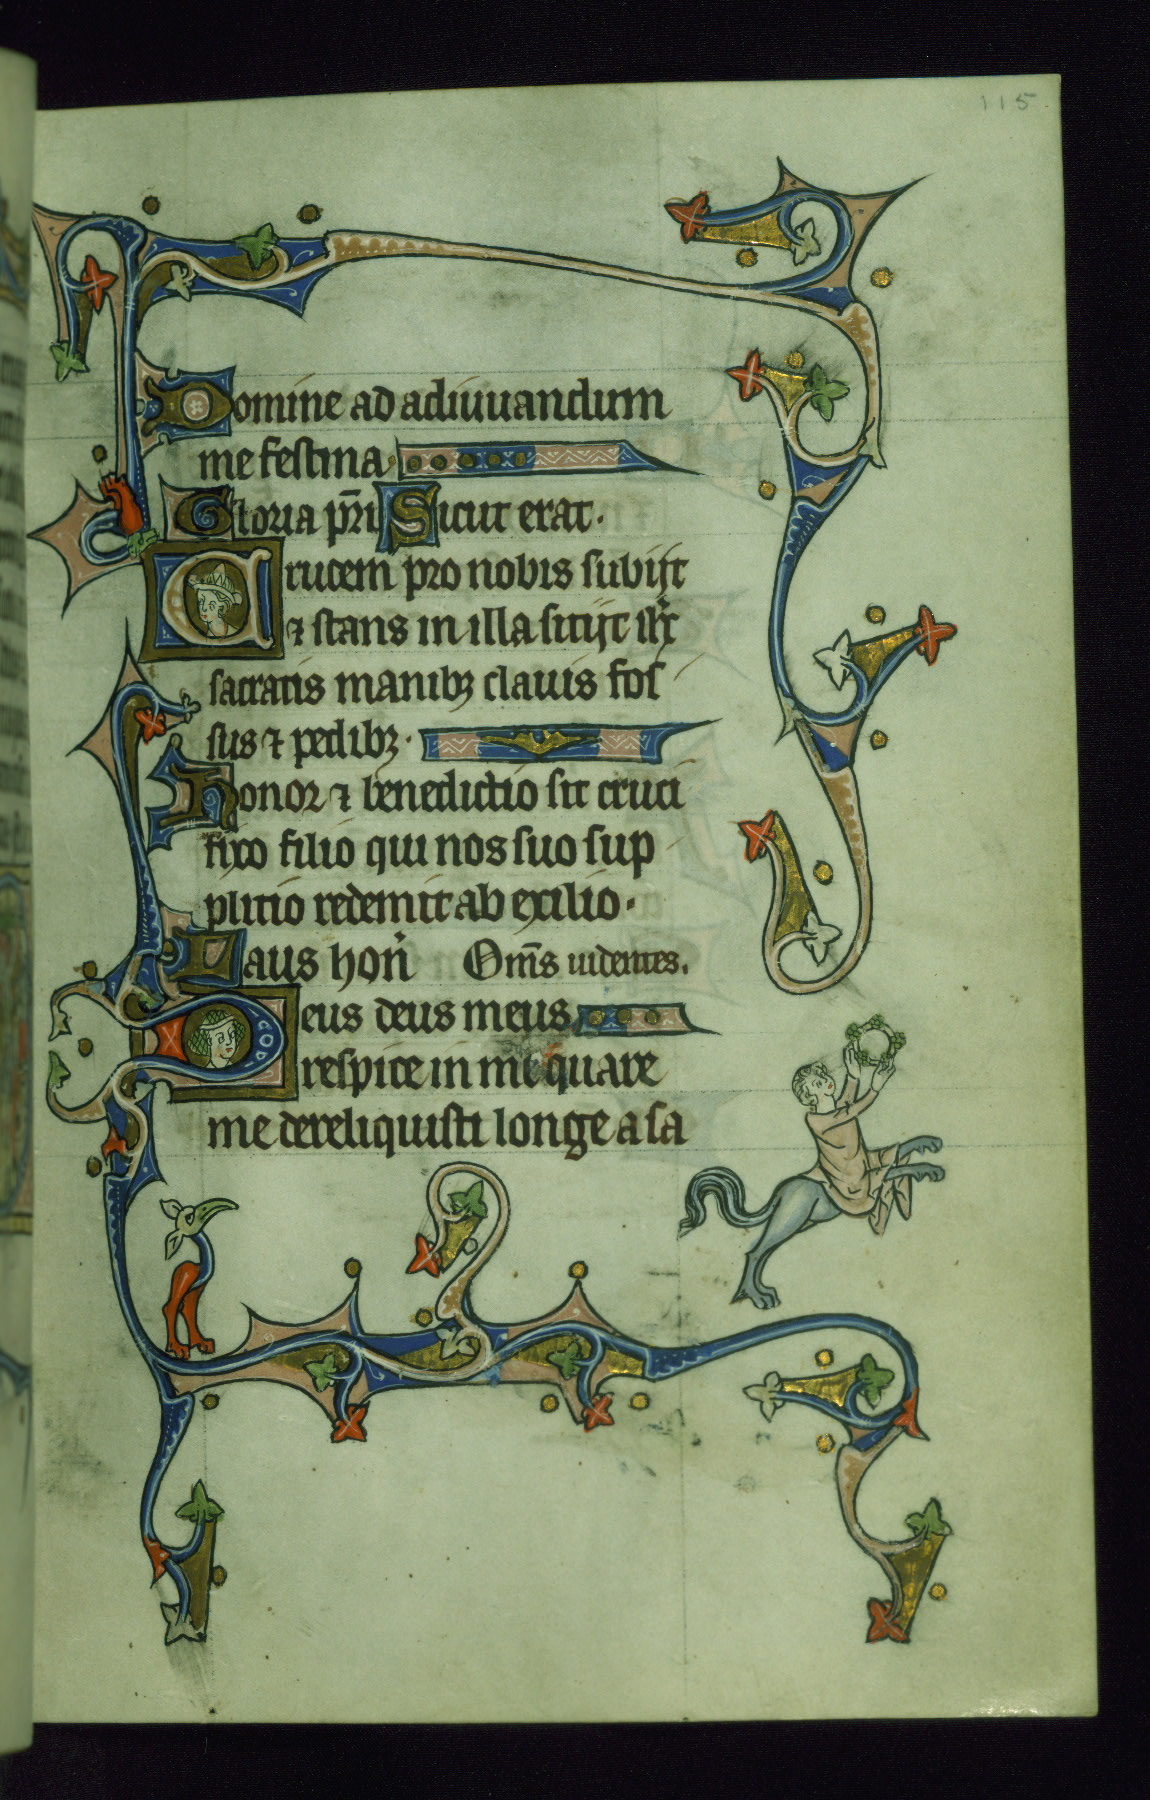 115
Domine ad adiuuandum
me festina
Gloria pr̄i Sicut erat.
Crucem pro nobis subijt
⁊ stans in illa sitijt
sacratis manibꝫ clauis fos
sus ⁊ pedibꝫ.
honor ⁊ benedictio sit cruci
fixo filio qui nos suo sup
plitio redemit ab exilio.
Laus hon̄ Om̄s uidentes.
Deus deus meus
respice in me quare
me dereliquisti longe a sa